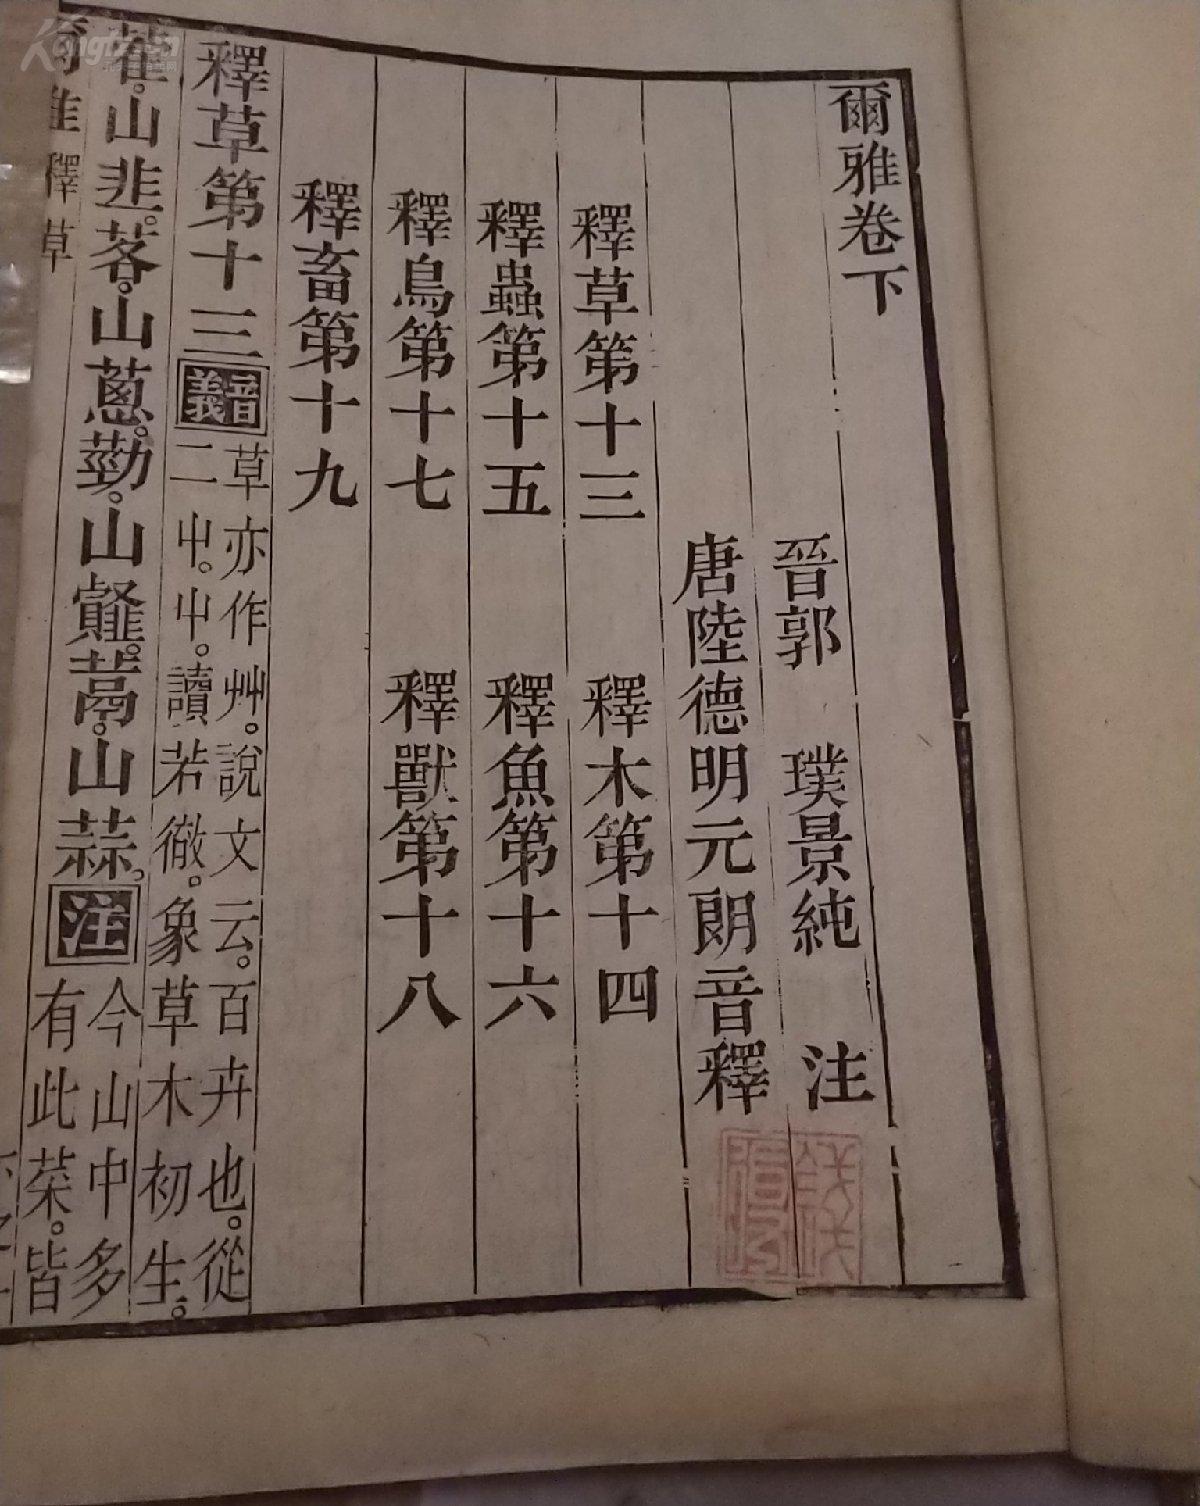 爾雅卷下
晉郭　璞景純　注
唐陸德明元朗音釋
釋草第十三　釋木第十四
釋蟲第十五　釋魚第十六
釋鳥第十七　釋獸第十八
釋畜第十九
釋草第十三
音義
草亦作艸。說文云。百卉也。從
二屮。屮。讀若徹。象草木初生。
藿。山韭。茖。山蔥。葝。山䪥。蒚。山蒜。
注
今山中多
有此菜。皆
爾雅 釋草